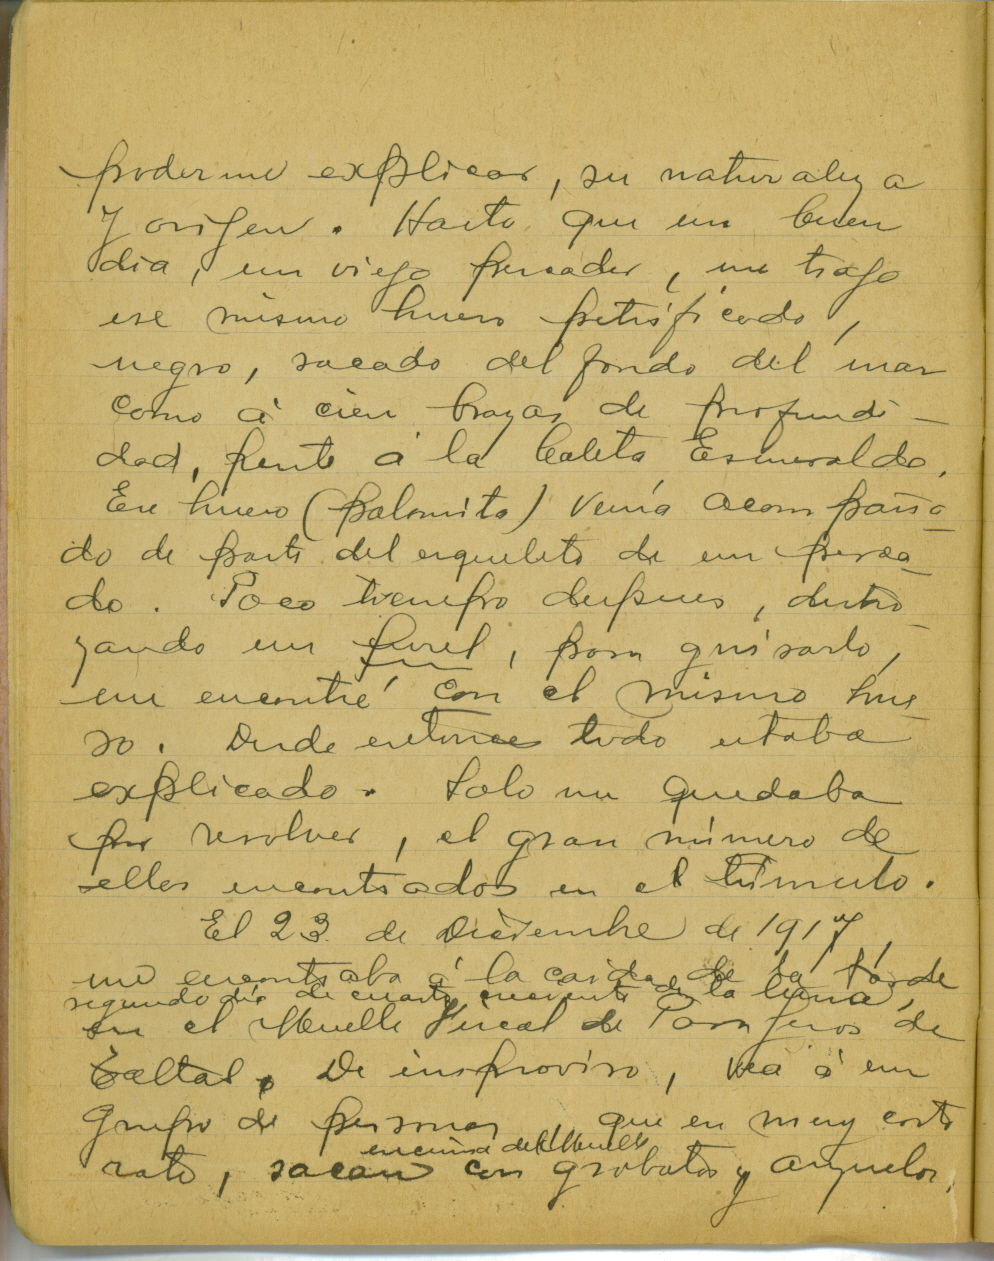 poderme explicar, su naturaleza
y origen. Hasta que un buen
dia, un viejo pescador, me trajo
ese mismo hueso petrificado,
negro, sacado del fondo del mar
como á cien brazas de profundi-
dad, frente á la Caleta Esmeralda.
Ese hueso (palomita) venía acompaña-
do de parte del esqueleto de un pesca-
do. Poco tiempo despues, destro-
zando un jurel, para guisarlo,
me encontré con el mismo hue-
so. Desde entonces todo estaba
explicado. Solo me quedaba
por resolver, el gran número de
ellos encontrados en el túmulo.
El 23 de Diciembre de 1917,
me encontraba á la caida de la tarde
segundo dia de cuarto creciente de la luna,
en el Muelle Fiscal de Pasajeros de
Taltal. De improviso, vea á un
grupo de personas que en muy corto
encima del Muelle
rato, sacan con grobatos y anzuelos,